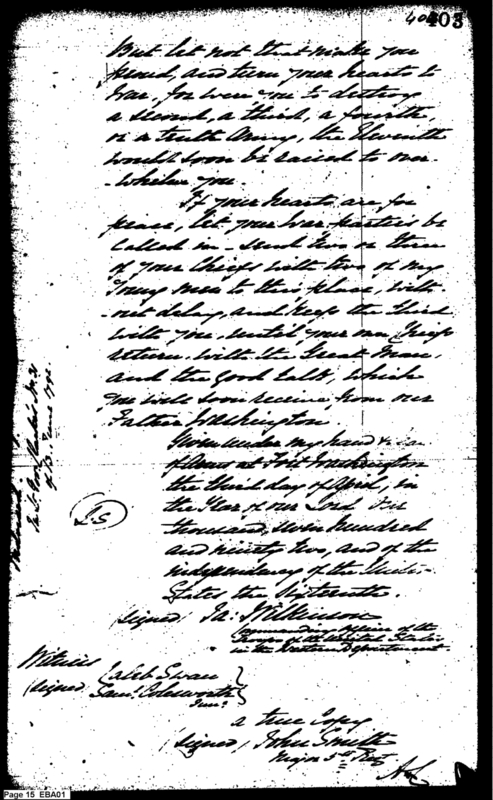 403
But let not that make you
proud, and turn your hearts to
War, for were you to destroy
a second, a third, a fourth,
or a tenth Army, the Eleventh
would soon be raised to over-
-whelm you.
If your hearts are for
peace, let your War parties be
called in - send two or three
of your Chiefs with two of my
Young men to this place, with-
-out delay, and keep the third
with you, until your own Chiefs
return with the Great Man,
and the good talk, which
you will soon receive, from our
Father Washington.
Given under my hand &
of Arms at Fort Washington
the third day of April, in
the Year of our Lord One
thousand, Seven hundred
and ninety two, and of the
independency of the United
States the Sixteenth.
LS
(signed) Ja: Wilkinson
Commanding Officer of the
Troops of the United States
in the Western Department.
Witness
(signed) Caleb Swan
Saml. Colesworth
Junr.
a true Copy
(signed) John Smith
Major 5th Regt
In Lt. Gov. No. 21
of 13 June 1792.
Page 15 EBA01